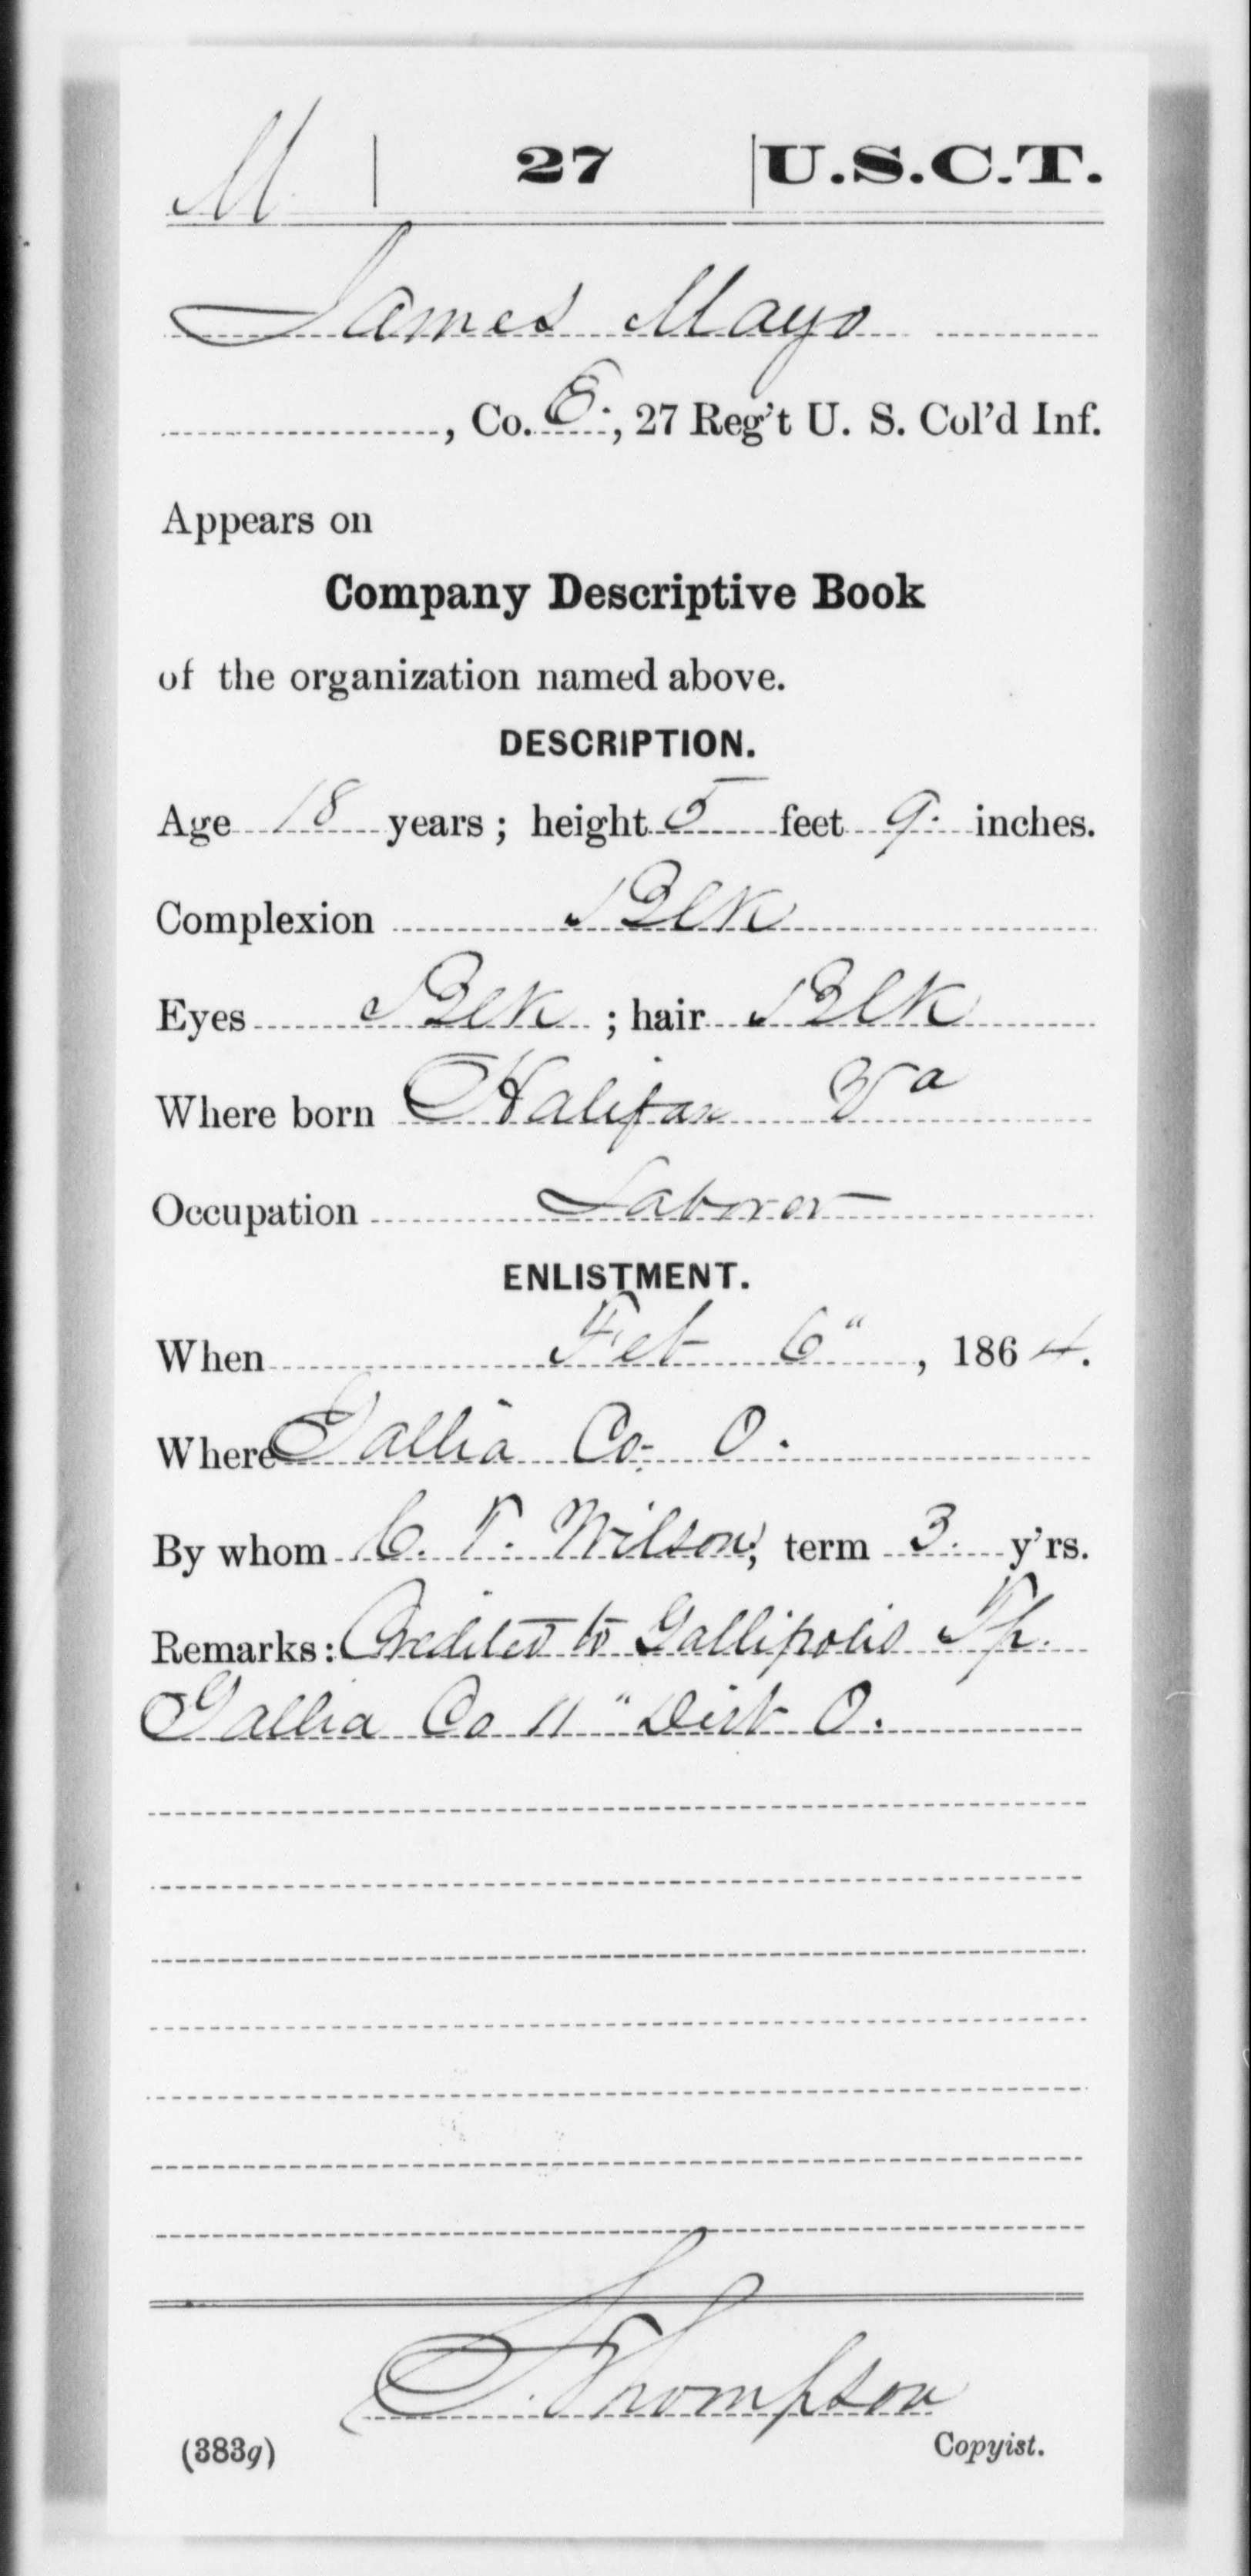 M | 27 | U.S.C.T.
James Mayo
, Co. E., 27 Reg't U. S. Col'd Inf.
Appears on
Company Descriptive Book
of the organization named above.
DESCRIPTION.
Age 18 years; height 5 feet 9. inches.
Complexion Blk
Eyes Blk; hair Blk
Where born Halifax Va
Occupation Laborer
ENLISTMENT.
When Feb 6", 1864.
Where Gallia Co. O.
By whom C. T. Wilson; term 3. y'rs.
Remarks: Credited to Gallipolis Tp.
Gallia Co 11" Dist O.
Thompson
(383g) Copyist.